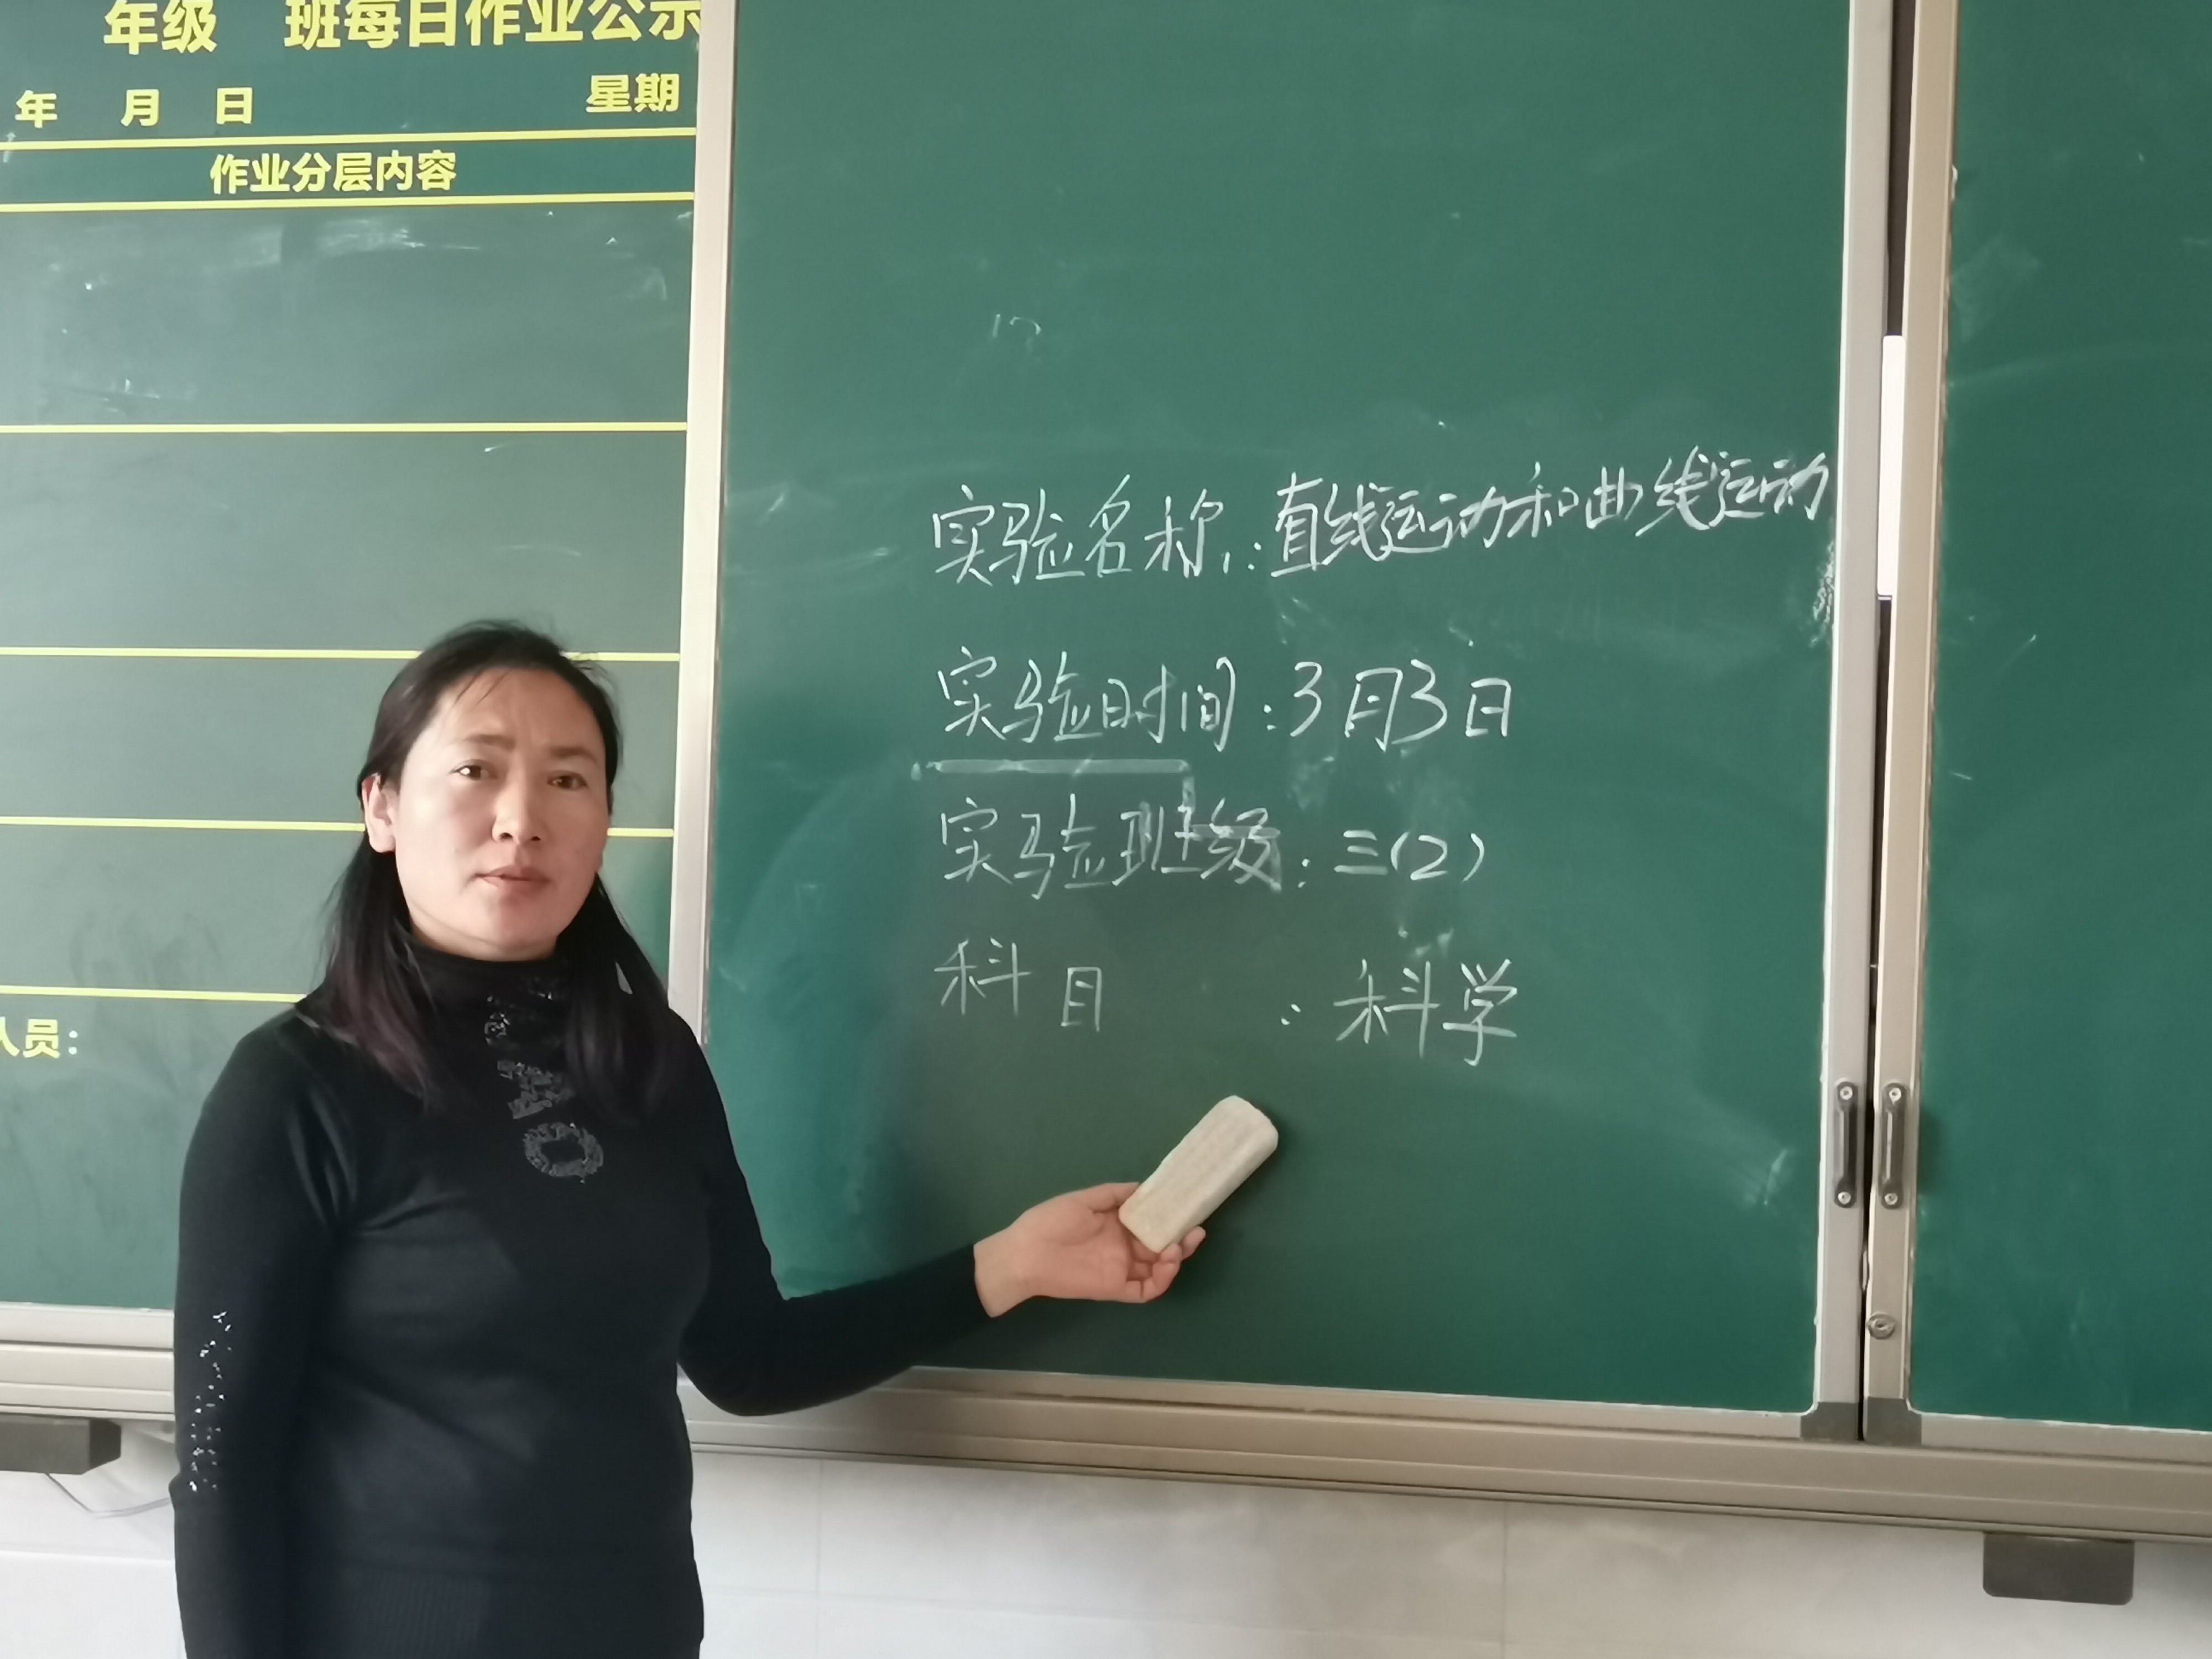 年级 班每日作业公示
年 月 日 星期
作业分层内容
人员：
实验名称：直线运动和曲线运动
实验时间：3月3日
实验班级：三(2)
科目：科学